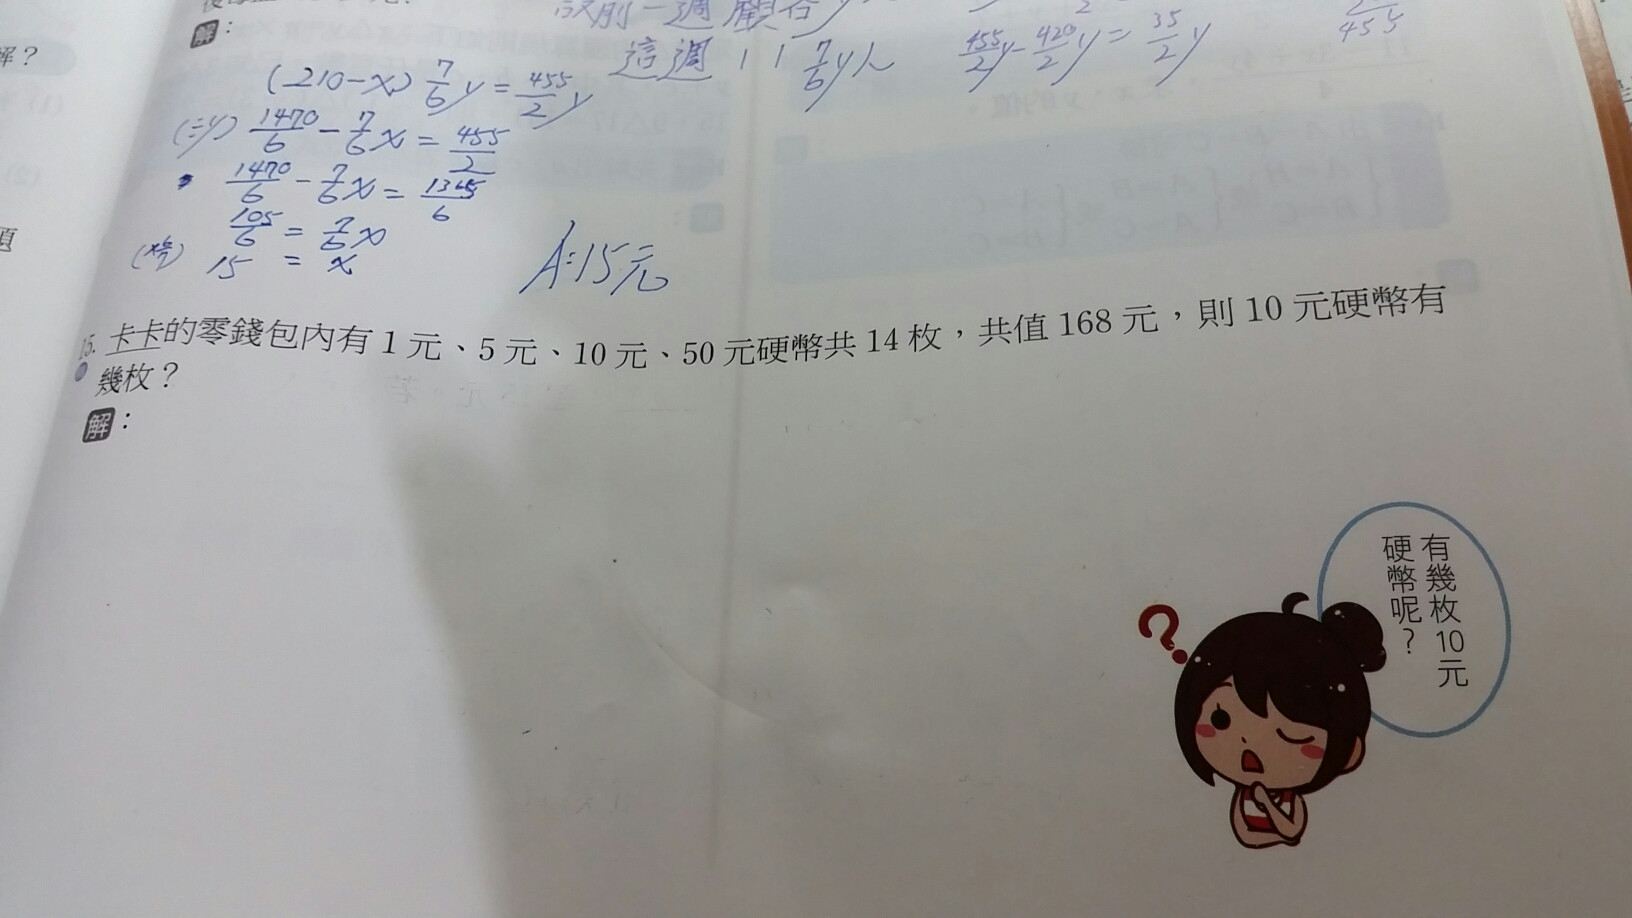 解：
設前一週觀眾y
這週 〃 7/6 y人
455/2 y - 420/2 y = 35/2 y
455
解？
(210-x) 7/6 y = 455/2 y
(÷y) 1470/6 - 7/6 x = 455/2
1470/6 - 7/6 x = 1365/6
105/6 = 7/6 x
15 = x
A:15元
題
15. 卡卡的零錢包內有 1 元、5 元、10 元、50 元硬幣共 14 枚，共值 168 元，則 10 元硬幣有
幾枚？
解：
有幾枚10元
硬幣呢？